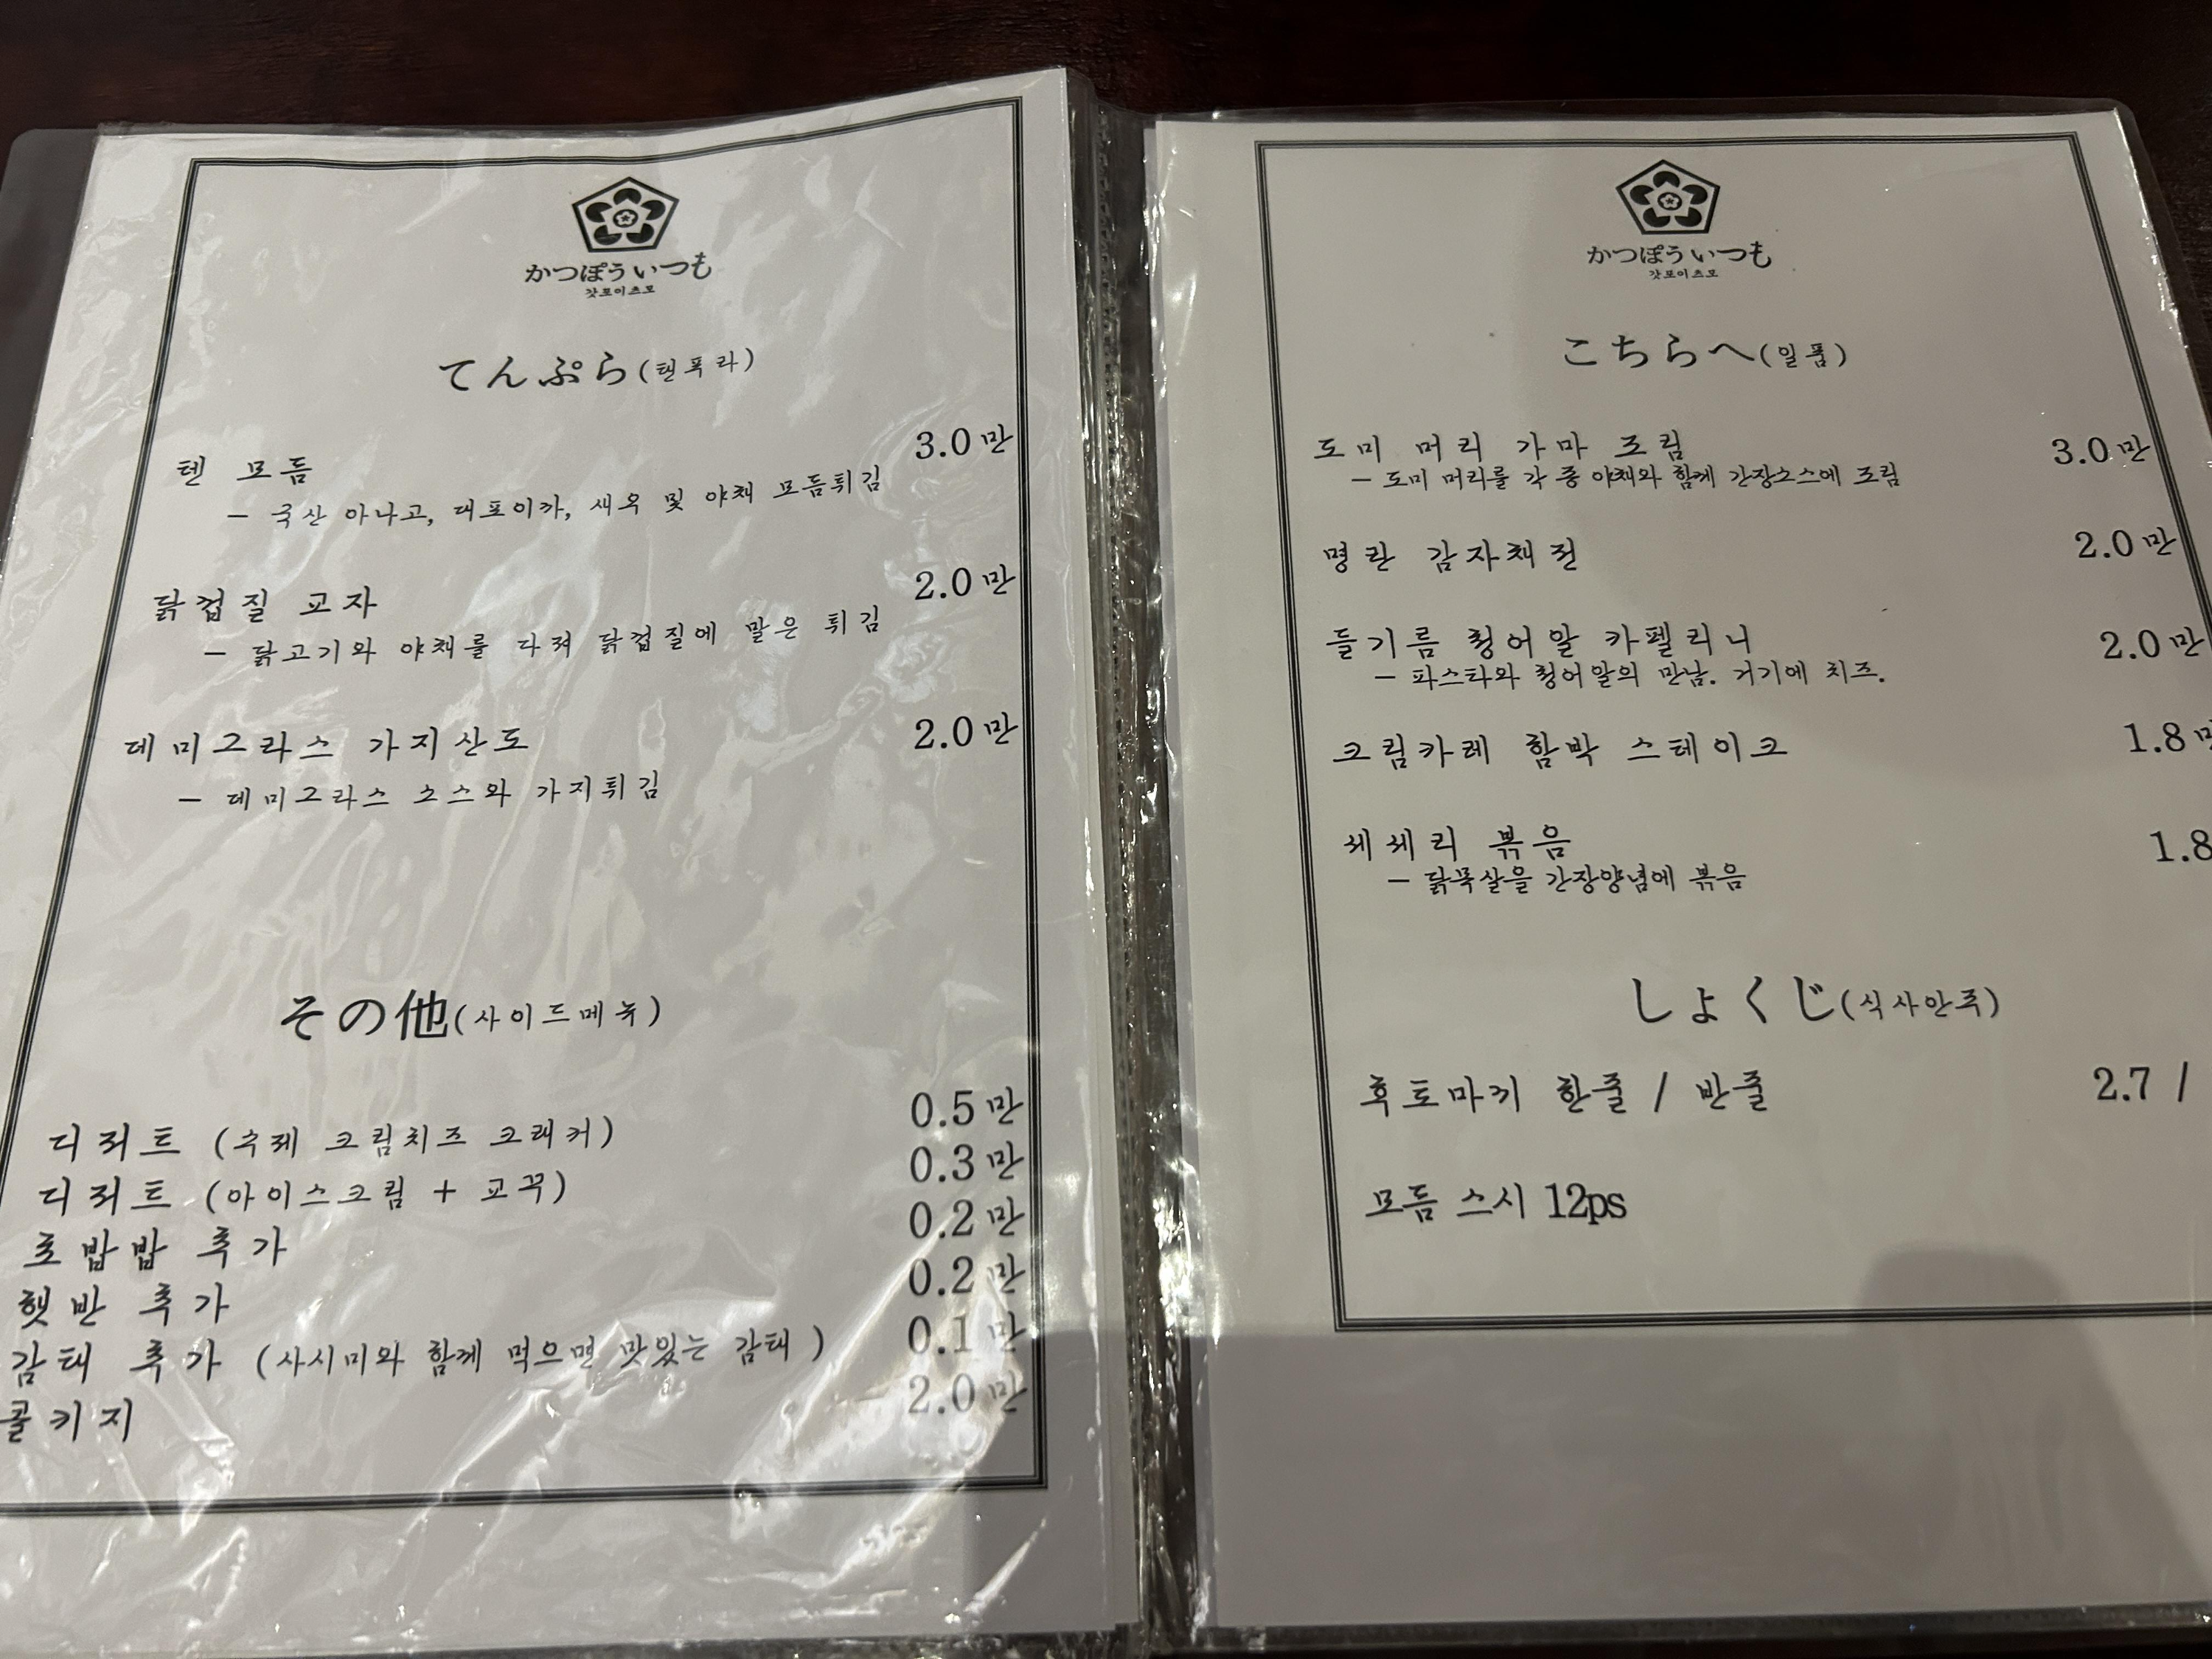 かつぽう いつも
갓포이츠모
てんぷら(텐푸라)
텐 모듬 3.0만
- 국산 아나고, 대포이카, 새우 및 야채 모듬튀김
닭껍질 교자 2.0만
- 닭고기와 야채를 다져 닭껍질에 말은 튀김
데미그라스 가지산도 2.0만
- 데미그라스 소스와 가지튀김
その他(사이드메뉴)
디저트 (수제 크림치즈 크래커) 0.5만
디저트 (아이스크림 + 교꾸) 0.3만
초밥밥 추가 0.2만
햇반 추가 0.2만
감태 추가 (사시미와 함께 먹으면 맛있는 감태 ) 0.1만
콜키지 2.0만
かつぽう いつも
갓포이츠모
こちらへ(일품)
도미 머리 가마 조림 3.0만
- 도미 머리를 각 종 야채와 함께 간장소스에 조림
명란 감자채전 2.0만
들기름 청어알 카펠리니 2.0만
- 파스타와 청어알의 만남. 거기에 치즈.
크림카레 함박 스테이크 1.8
세세리 볶음 1.8
- 닭목살을 간장양념에 볶음
しょくじ(식사안주)
후토마끼 한줄 / 반줄 2.7 /
모듬 스시 12ps